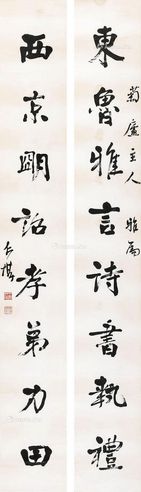 菊廬主人雅屬
東魯雅言詩書執禮
西京明詔孝弟力田